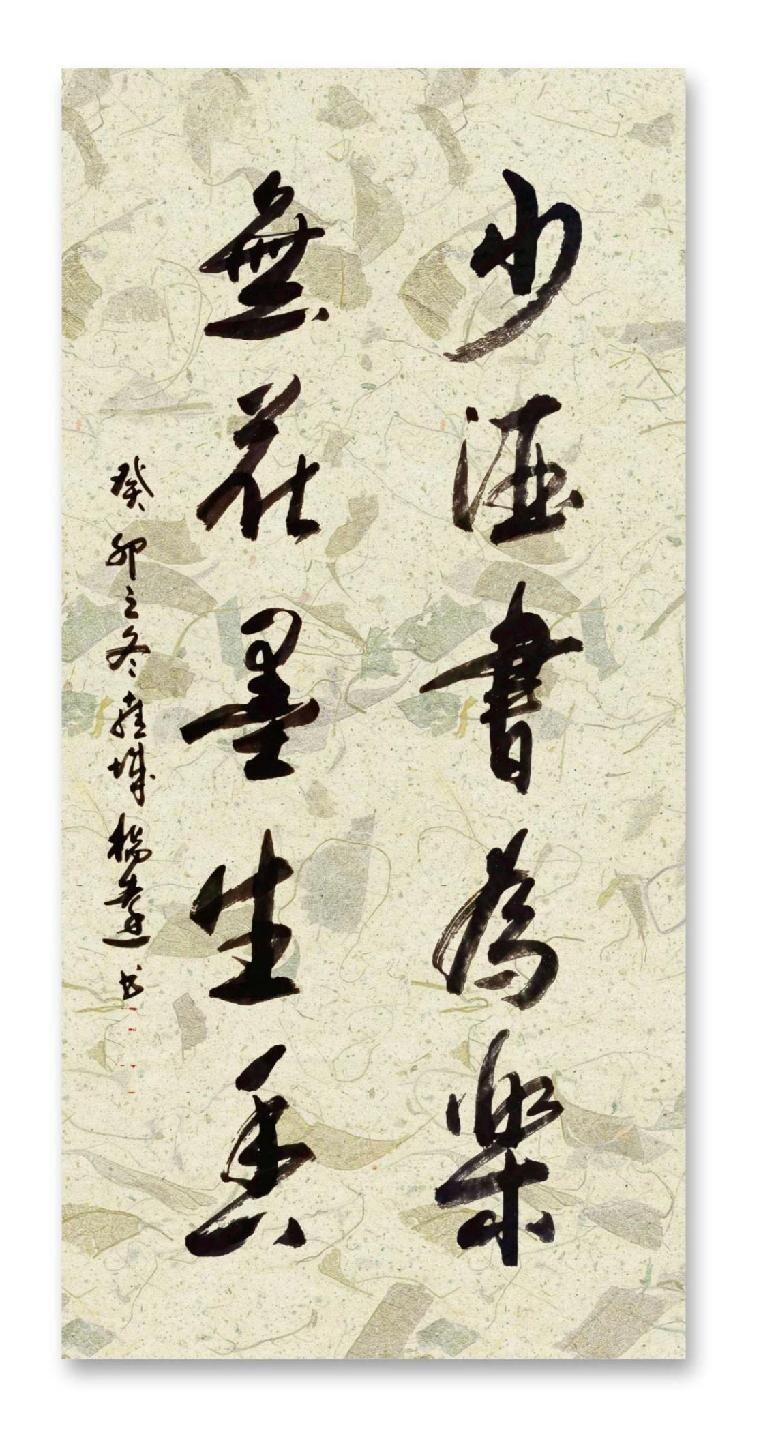 少酒書為樂
無花墨生香
癸卯立冬 楊 書